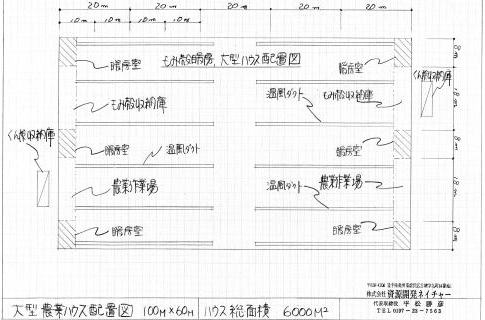 20m 20m 20m 20m 20m
10m 10m 10m 10m
もみ殻暖房、大型ハウス配置図
暖房室
暖房室
8m
くん炭収納庫
もみ殻収納庫
温風ダクト
もみ殻収納庫
18m
くん炭収納庫
暖房室
温風ダクト
暖房室
8m
農業作業場
温風ダクト
農業作業場
18m
暖房室
暖房室
8m
株式会社 資源開発ネイチャー
代表取締役 平松勝彦
TEL 0197-23-7563
大型農業ハウス配置図 100M×60M ハウス総面積 6000M²